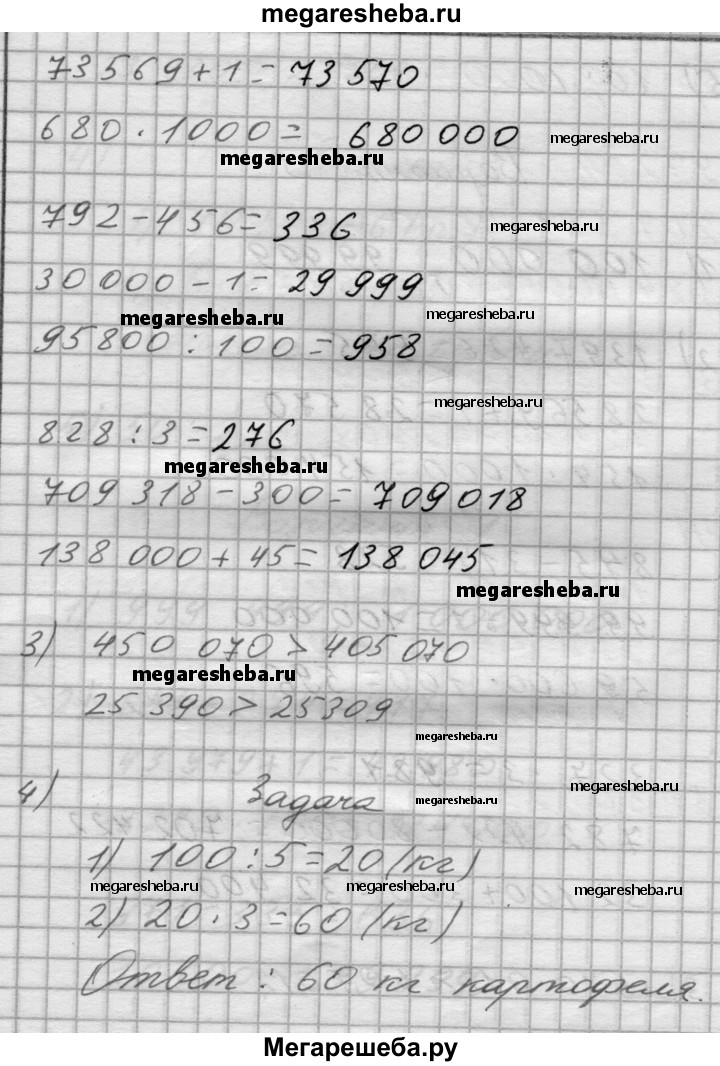 megaresheba.ru
73 569 + 1 = 73 570
680 · 1000 = 680 000
megaresheba.ru
megaresheba.ru
792 - 456 = 336
megaresheba.ru
30 000 - 1 = 29 999
megaresheba.ru
megaresheba.ru
95800 : 100 = 958
megaresheba.ru
828 : 3 = 276
megaresheba.ru
709 318 - 300 = 709 018
138 000 + 45 = 138 045
megaresheba.ru
3) 450 070 > 405 070
megaresheba.ru
25 390 > 25309
megaresheba.ru
megaresheba.ru
4) Задача
megaresheba.ru
1) 100 : 5 = 20 (кг)
megaresheba.ru megaresheba.ru megaresheba.ru
2) 20 · 3 = 60 (кг)
Ответ : 60 кг картофеля.
Мегарешеба.ру